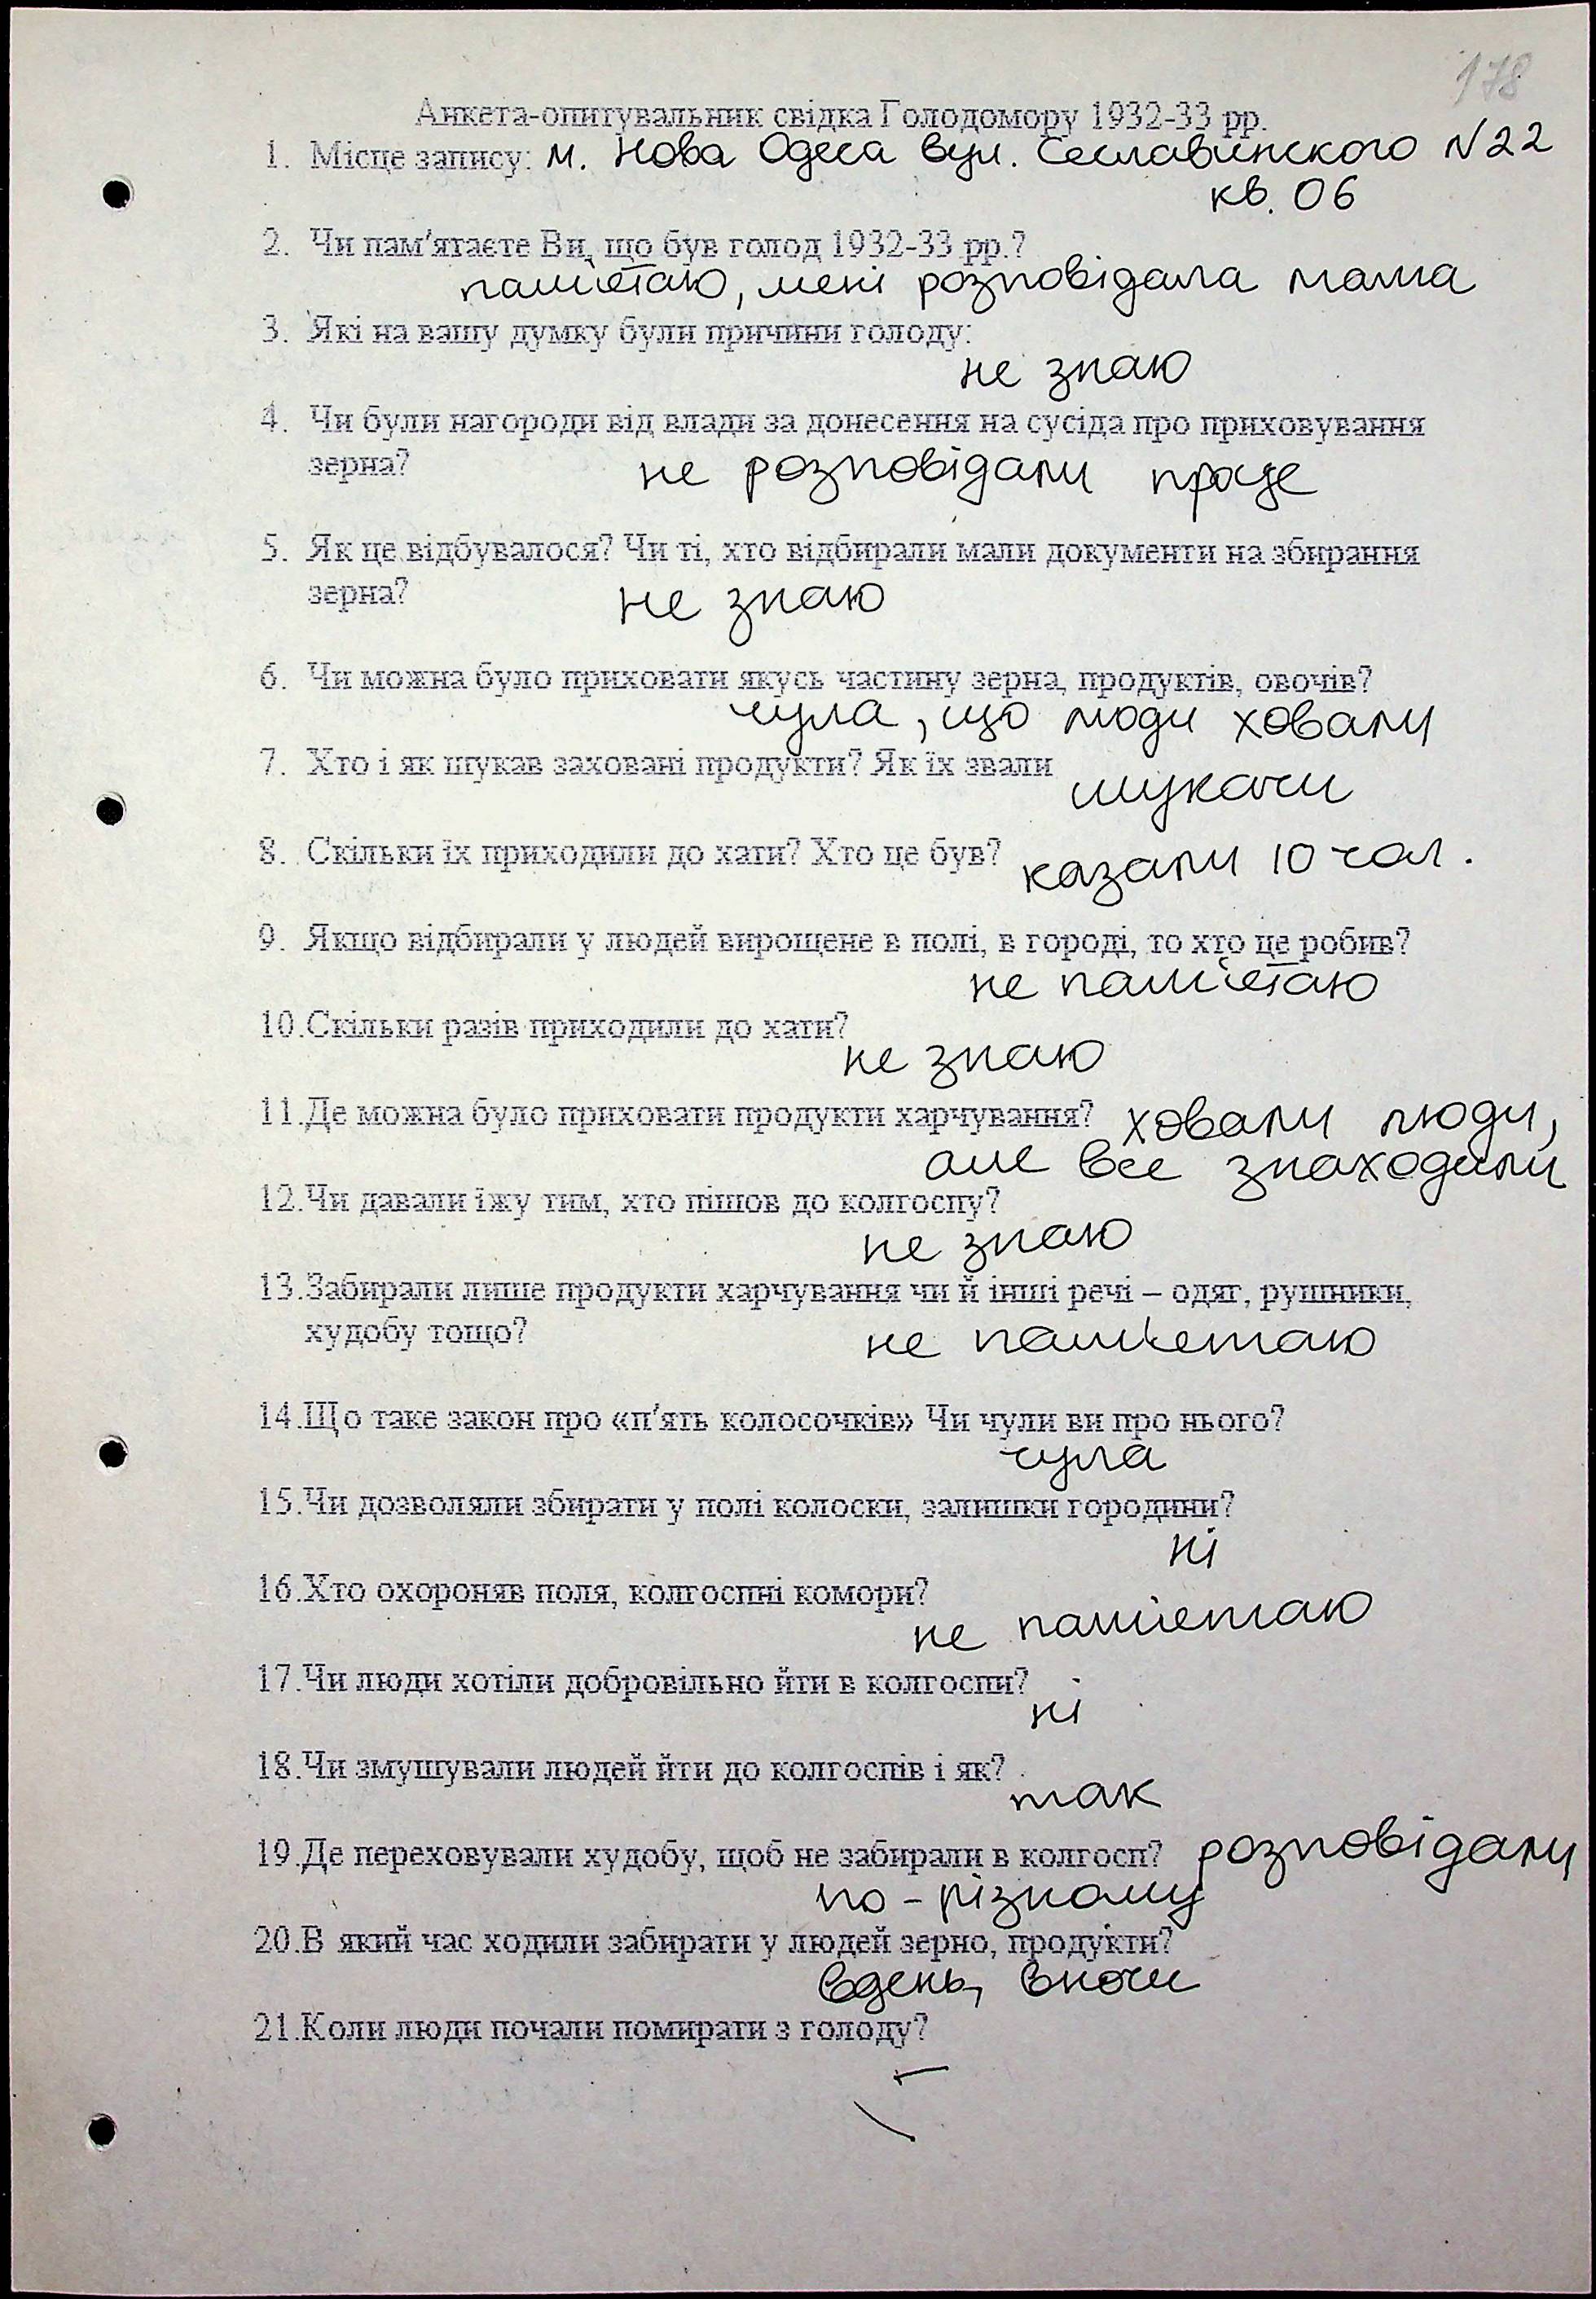 178
Анкета-опитувальник свідка Голодомору 1932-33 рр.
1. Місце запису: м. Нова Одеса вул. Сеславинского №22
кв. 06
2. Чи пам'ятаєте Ви, що був голод 1932-33 рр.?
памієтаю, мені розповідала мама
3. Які на вашу думку були причини голоду:
не знаю
4. Чи були нагороди від влади за донесення на сусіда про приховування
зерна? не розповідали про це
5. Як це відбувалося? Чи ті, хто відбирали мали документи на збирання
зерна? не знаю
6. Чи можна було приховати якусь частину зерна, продуктів, овочів?
чула, що люди ховали
7. Хто і як шукав заховані продукти? Як їх звали
шукачи
8. Скільки їх приходили до хати? Хто це був? казали 10 чол.
9. Якщо відбирали у людей вирощене в полі, в городі, то хто це робив?
не памієтаю
10.Скільки разів приходили до хати?
не знаю
11.Де можна було приховати продукти харчування? ховали люди,
але все знаходили
12.Чи давали їжу тим, хто пішов до колгоспу?
не знаю
13.Забирали лише продукти харчування чи й інші речі – одяг, рушники,
худобу тощо? не памієтаю
14.Що таке закон про «п'ять колосочків» Чи чули ви про нього?
чула
15.Чи дозволяли збирати у полі колоски, залишки городини?
ні
16.Хто охороняв поля, колгоспні комори?
не памієтаю
17.Чи люди хотіли добровільно йти в колгоспи?
ні
18.Чи змушували людей йти до колгоспів і як?
так
19.Де переховували худобу, щоб не забирали в колгосп? розповідали
по-різному
20.В який час ходили забирати у людей зерно, продукти?
вдень, вночи
21.Коли люди почали помирати з голоду?